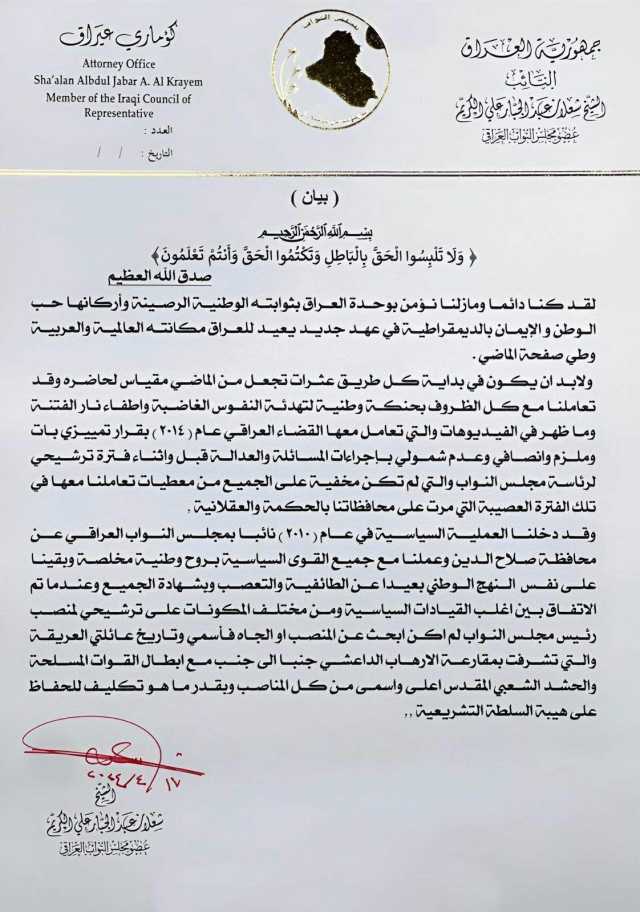 كۆماری عێراق
Attorney Office
Sha'alan Albdul Jabar A. Al Krayem
Member of the Iraqi Council of
Representative
العدد :
التاريخ : / /
مجلس النواب
جمهورية العراق
النائب
الشيخ شعلان عبد الجبار علي الكريم
عضو مجلس النواب العراقي
( بيان )
بسم الله الرحمن الرحيم
﴿ وَلَا تَلْبِسُوا الْحَقَّ بِالْبَاطِلِ وَتَكْتُمُوا الْحَقَّ وَأَنتُمْ تَعْلَمُونَ﴾
صدق الله العظيم
لقد كنا دائما ومازلنا نؤمن بوحدة العراق بثوابته الوطنية الرصينة وأركانها حب
الوطن والإيمان بالديمقراطية في عهد جديد يعيد للعراق مكانته العالمية والعربية
وطي صفحة الماضي .
ولابد ان يكون في بداية كل طريق عثرات تجعل من الماضي مقياس لحاضره وقد
تعاملنا مع كل الظروف بحنكة وطنية لتهدئة النفوس الغاضبة واطفاء نار الفتنة
وما ظهر في الفيديوهات والتي تعامل معها القضاء العراقي عام (٢٠١٤) بقرار تمييزي بات
وملزم وانصافي وعدم شمولي بإجراءات المسائلة والعدالة قبل واثناء فترة ترشيحي
لرئاسة مجلس النواب والتي لم تكن مخفية على الجميع من معطيات تعاملنا معها في
تلك الفترة العصيبة التي مرت على محافظاتنا بالحكمة والعقلانية ,
وقد دخلنا العملية السياسية في عام (٢٠١٠) نائبا بمجلس النواب العراقي عن
محافظة صلاح الدين وعملنا مع جميع القوى السياسية بروح وطنية مخلصة وبقينا
على نفس النهج الوطني بعيدا عن الطائفية والتعصب وبشهادة الجميع وعندما تم
الاتفاق بين اغلب القيادات السياسية ومن مختلف المكونات على ترشيحي لمنصب
رئيس مجلس النواب لم اكن ابحث عن المنصب او الجاه فأسمي وتاريخ عائلتي العريقة
والتي تشرفت بمقارعة الارهاب الداعشي جنبا الى جنب مع ابطال القوات المسلحة
والحشد الشعبي المقدس اعلى واسمى من كل المناصب وبقدر ما هو تكليف للحفاظ
على هيبة السلطة التشريعية ,,
٢٠٢٤/٤/١٧
الشيخ
شعلان عبد الجبار علي الكريم
عضو مجلس النواب العراقي